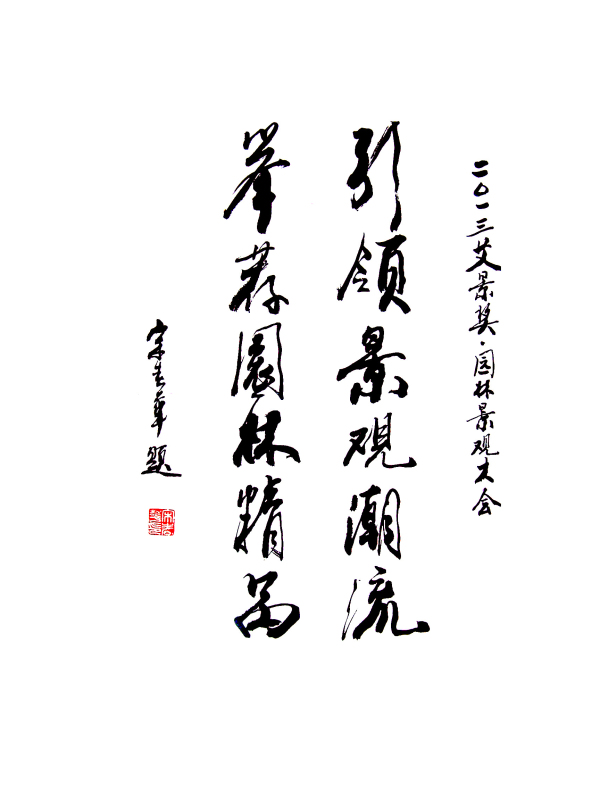 二〇一三艾景奖·园林景观大会
引领景观潮流
举荐园林精品
宋春华题